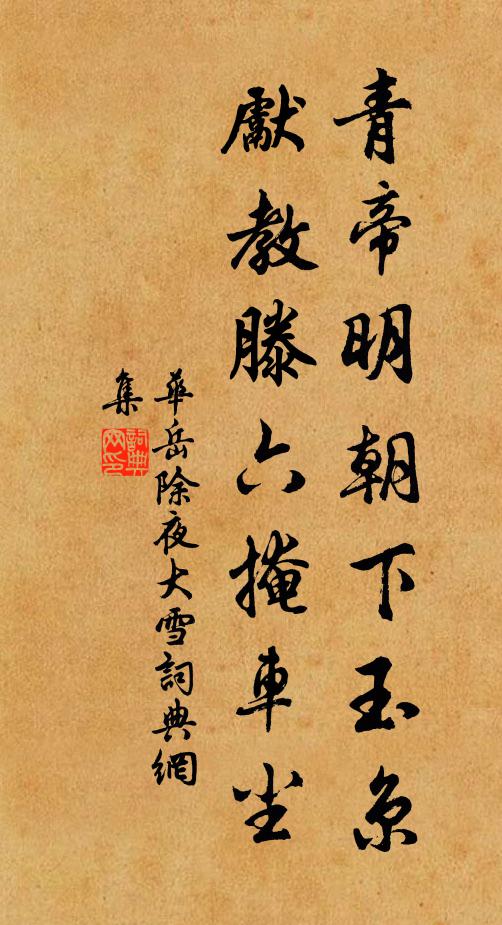 青帝明朝下玉京
獻教滕六掩車尘
華岳除夜大雪詞典網
集
詞典網印